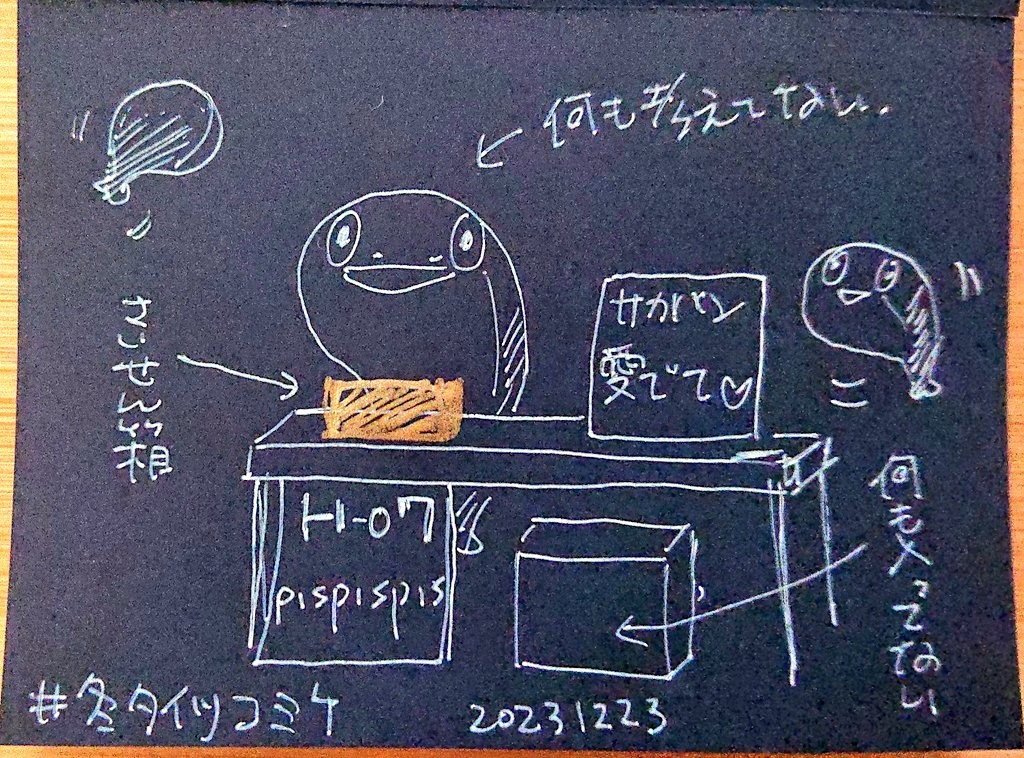 何も考えてない.
さいせん箱
サカバン
愛でて♡
何も入ってない
トI-07
pispispis
#冬タイツコミケ
20231223